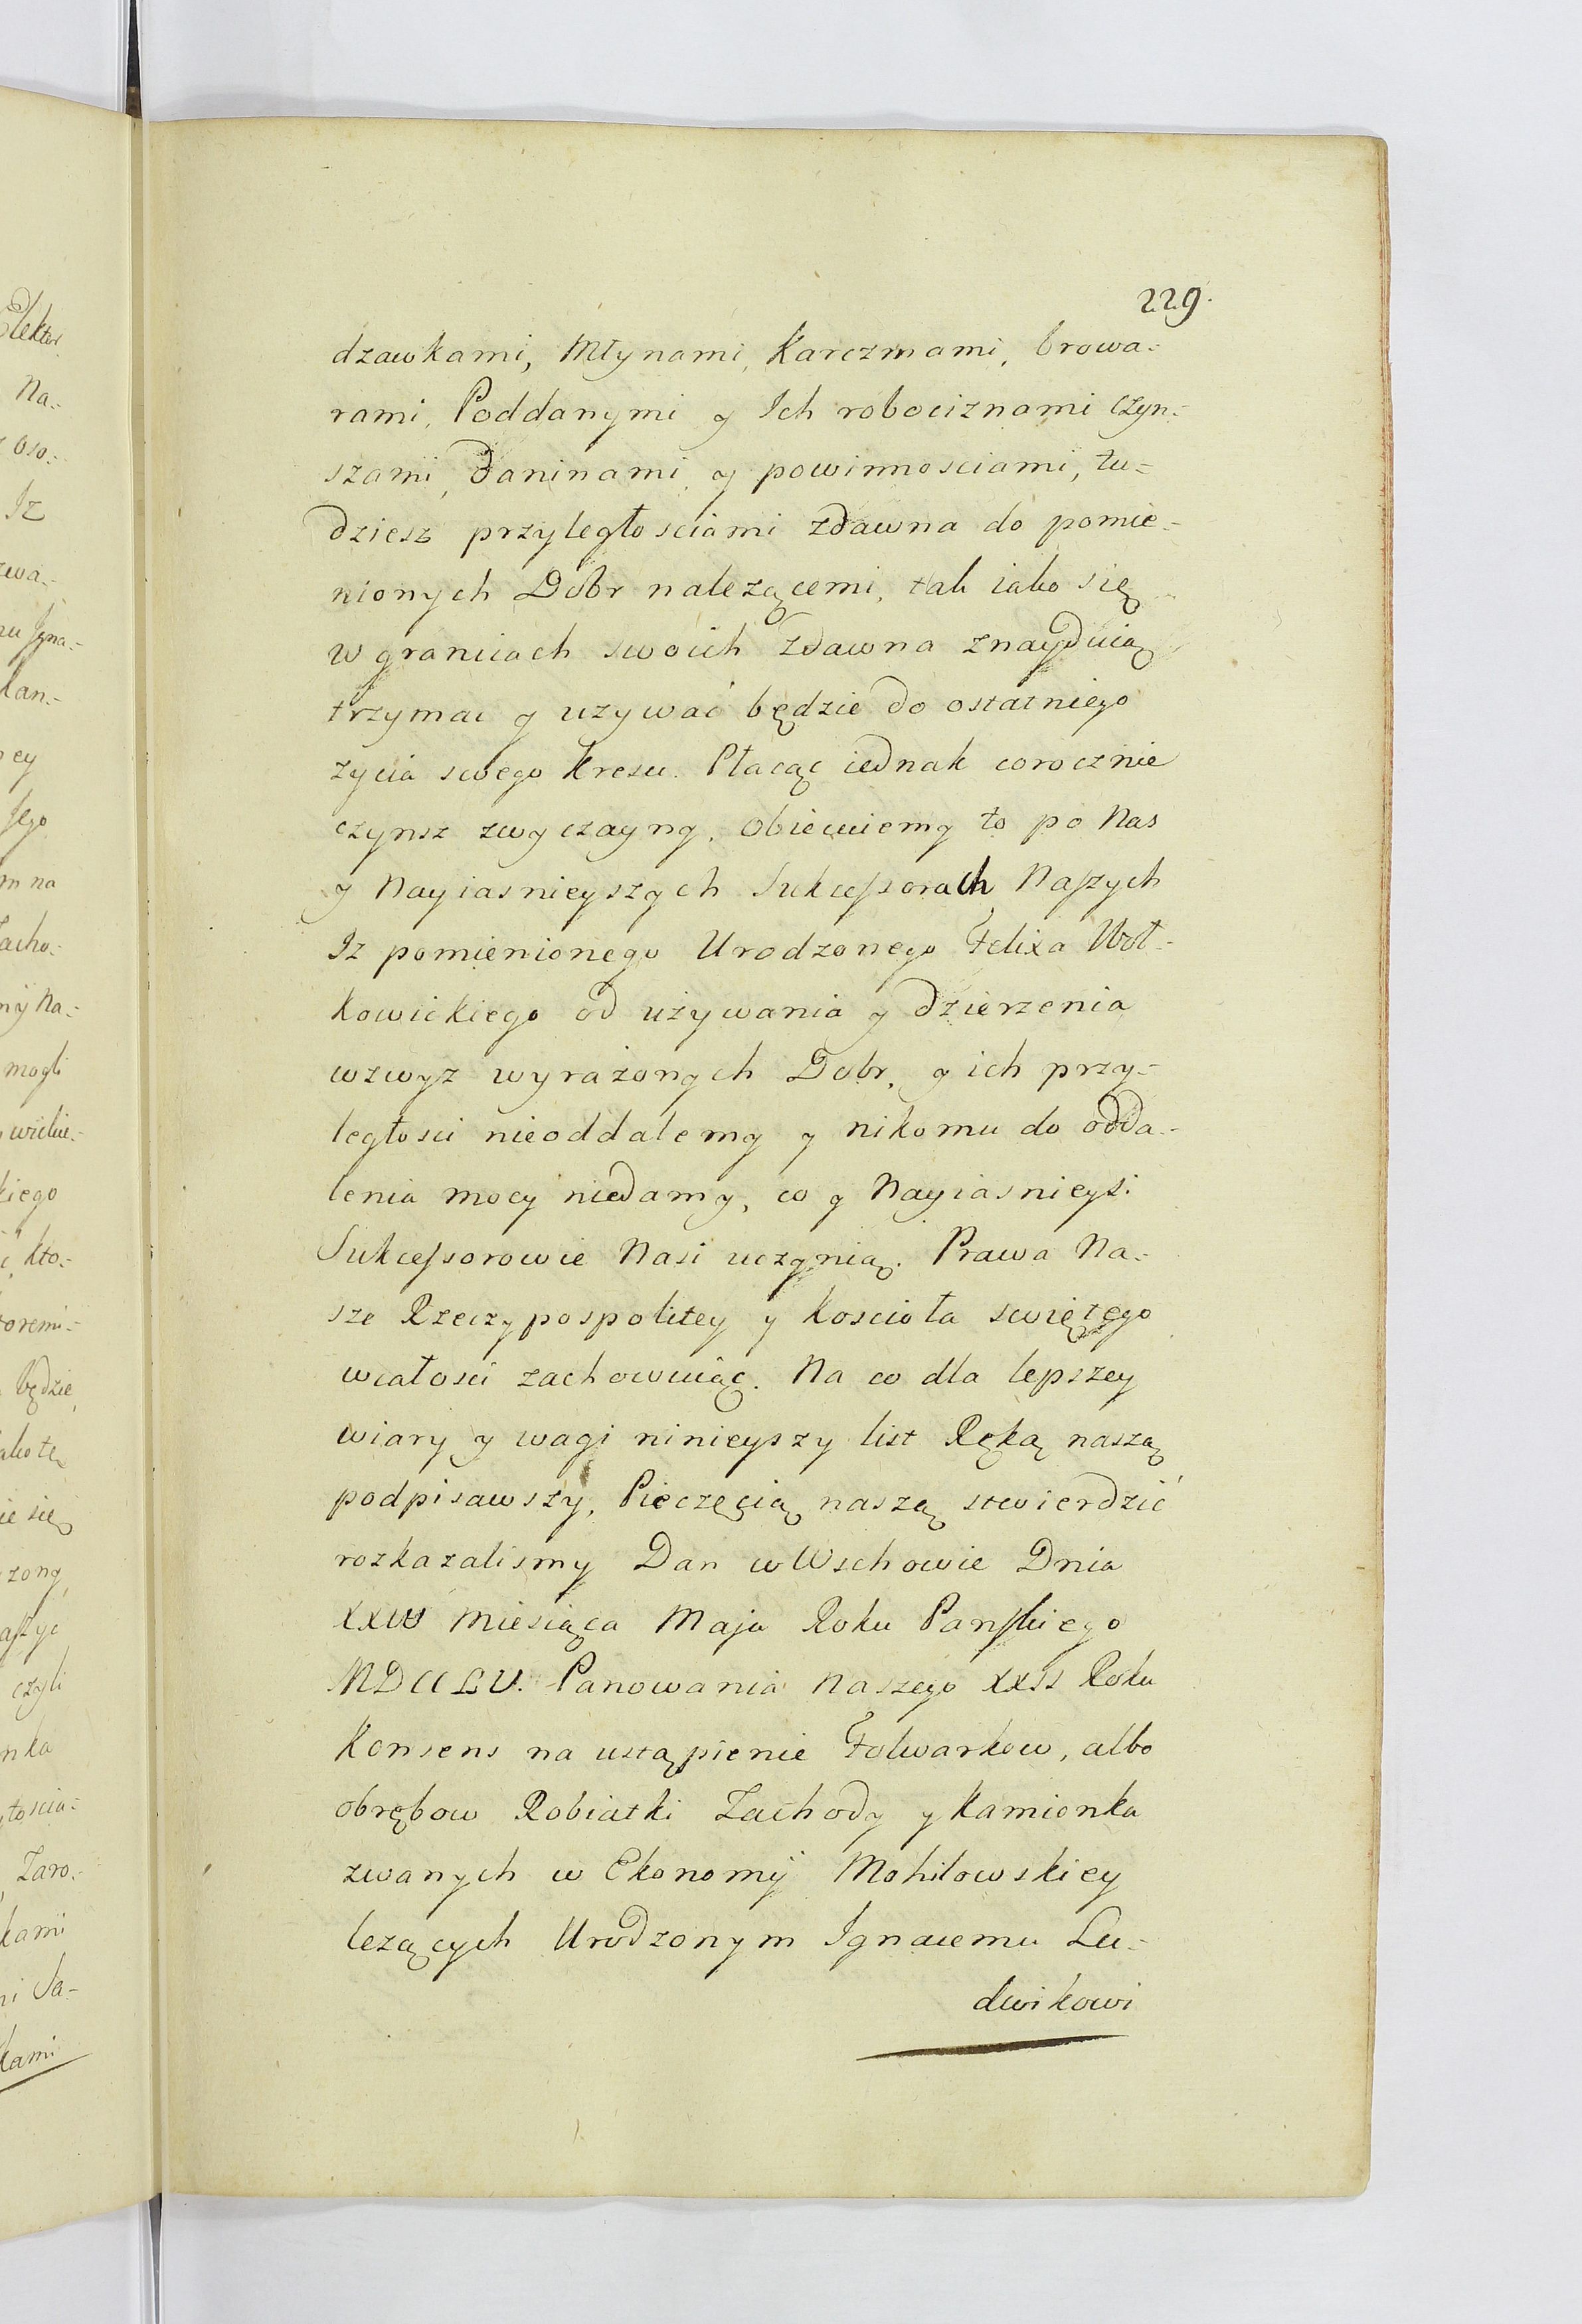 229.
dzawkami, Młynami, Karczmami, browa-
rami, Poddanymi y Ich robociznami czyn-
szami, daninami, y powinnosciami, tu-
dziesz przyległosciami zdawna do pomie-
nionych Dobr nalezącemi, tak iako się
w granicach swoich zdawna znayduią
trzymac y uzywać będzie do ostatniego
zycia swego kresu. Płacąc iednak corocznie
czynsz zwyczayny. Obiecuiemy to po Nas
y Nayiasnieyszych Sukcessorach Naszych
Iz pomienionego Urodzonego Felixa Woł-
kowickiego od używania y dzierzenia
wzwyz wyrażonych Dobr, y ich przy-
ległosci nieoddalemy y nikomu do odda-
lenia mocy niedamy, co y Nayiasnieysi
Sukcessorowie Nasi uczynią. Prawa Na-
sze Rzeczypospolitey y koscioła swiętego
wcałosci zachowuiąc. Na co dla lepszey
wiary y wagi ninieyszy list Ręką naszą
podpisawszy, Pieczęcią naszą stwierdzić
rozkazalismy Dan w Wschowie Dnia
Miesiąca Maja Roku Panskiego
MDCCLV. Panowania Naszego XXII Roku
Konsens na ustąpienie Folwarkow, albo
obrębow Robiatki Zachody y Kamionka
zwanych w Ekonomij Mohilowskiey
lezących Urodzonym Ignacemu Lu-
dwikowi
Elektor
Na-
Iz
mogli
kiego
będzie
kami